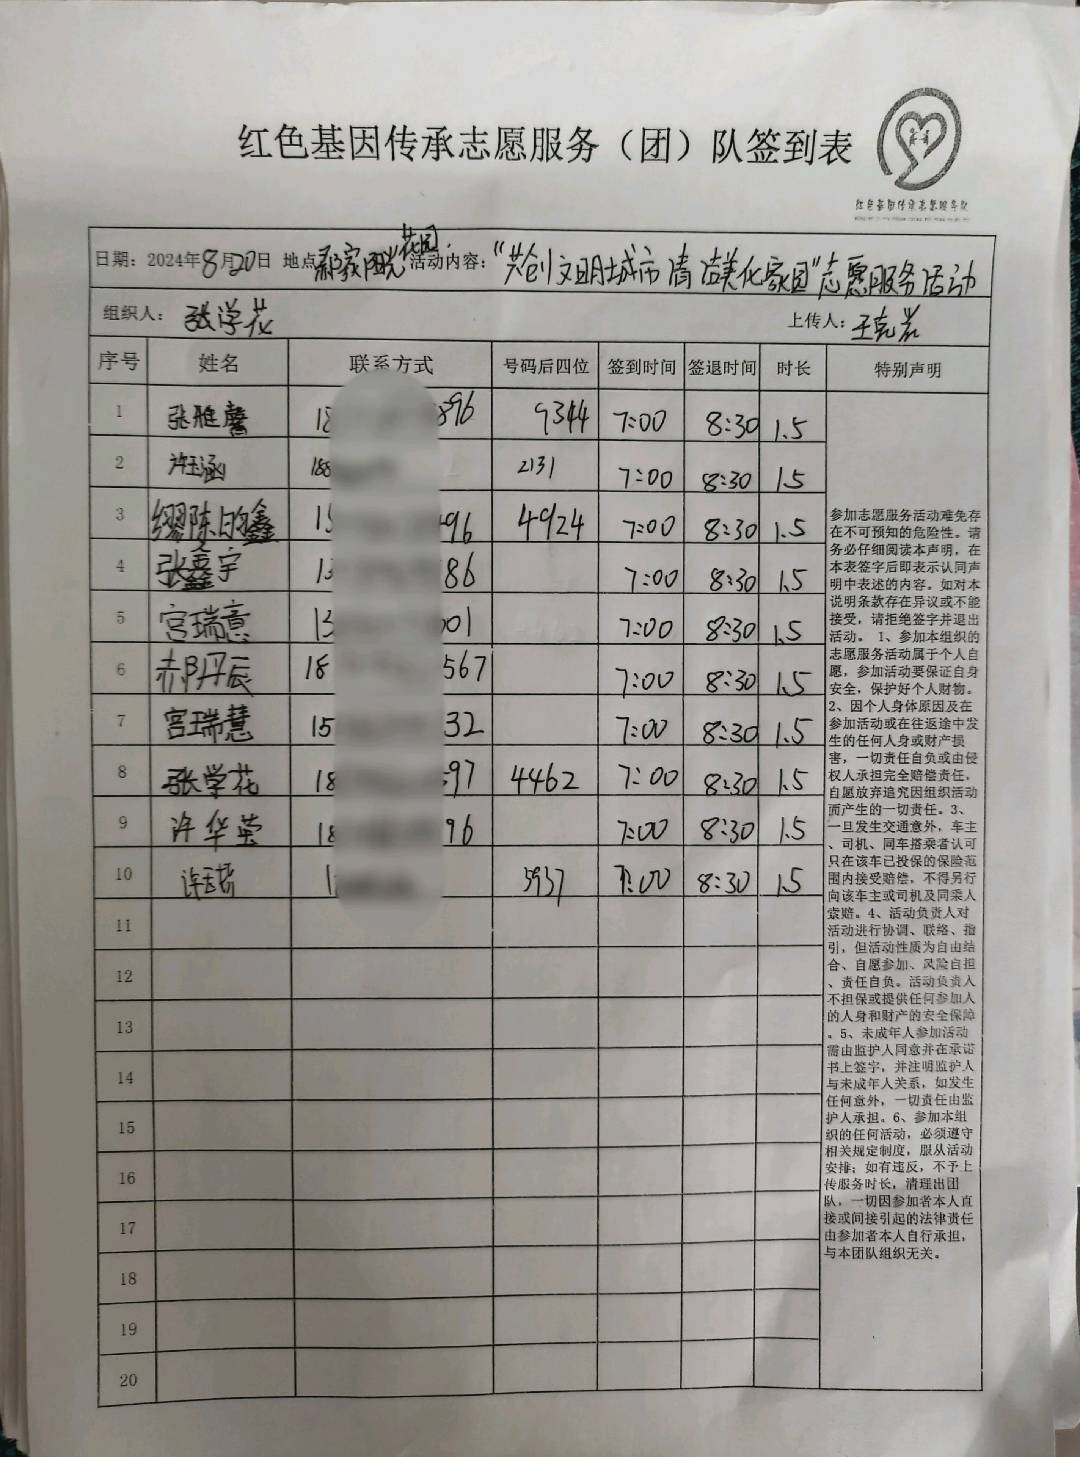 红色基因传承志愿服务（团）队签到表
红色基因传承志愿服务队
日期：2024年8月20日 地点 郝家阳光花园 活动内容："共创文明城市 清洁美化家园"志愿服务活动
组织人：张学花 上传人：王克岩
序号 姓名 联系方式 号码后四位 签到时间 签退时间 时长 特别声明
1 张雅馨 18 896 9344 7:00 8:30 1.5
2 许玉涵 188 2131 7:00 8:30 1.5
3 缪陈昀鑫 15 496 4924 7:00 8:30 1.5
4 张鑫宇 13 86 7:00 8:30 1.5
5 宫瑞意 13 001 7:00 8:30 1.5
6 郝丹辰 18 567 7:00 8:30 1.5
7 宫瑞慧 15 32 7:00 8:30 1.5
8 张学花 18 97 4462 7:00 8:30 1.5
9 许华英 18 96 7:00 8:30 1.5
10 许 1 5937 7:00 8:30 1.5
11
12
13
14
15
16
17
18
19
20
参加志愿服务活动难免存
在不可预知的危险性。请
务必仔细阅读本声明，在
本表签字后即表示认同声
明中表述的内容。如对本
说明条款存在异议或不能
接受，请拒绝签字并退出
活动。 1、参加本组织的
志愿服务活动属于个人自
愿，参加活动要保证自身
安全，保护好个人财物。
2、因个人身体原因及在
参加活动或在往返途中发
生的任何人身或财产损
害，一切责任自负或由侵
权人承担完全赔偿责任，
自愿放弃追究因组织活动
而产生的一切责任。3、
一旦发生交通意外，车主
、司机、同车搭乘者认可
只在该车已投保的保险范
围内接受赔偿，不得另行
向该车主或司机及同乘人
索赔。4、活动负责人对
活动进行协调、联络、指
引，但活动性质为自由结
合、自愿参加、风险自担
、责任自负。活动负责人
不担保或提供任何参加人
的人身和财产的安全保障
。5、未成年人参加活动
需由监护人同意并在承诺
书上签字，并注明监护人
与未成年人关系，如发生
任何意外，一切责任由监
护人承担。6、参加本组
织的任何活动，必须遵守
相关规定制度，服从活动
安排；如有违反，不予上
传服务时长，清理出团
队，一切因参加者本人直
接或间接引起的法律责任
由参加者本人自行承担，
与本团队组织无关。